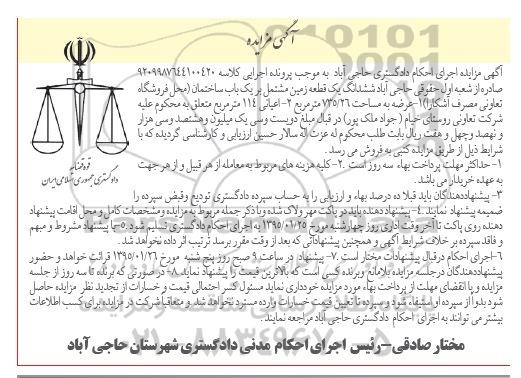 آگهی مزایده
قوه قضائیه
دادگستری جمهوری اسلامی ایران
آگهی مزایده اجرای احکام دادگستری حاجی آباد به موجب پرونده اجرایی کلاسه ۹۲۰۹۹۸۷۶۴۴۱۰۰۴۲۰
صادره از شعبه اول حقوقی حاجی آباد ششدانگ یک قطعه زمین مشتمل بر یک باب ساختمان (محل فروشگاه
تعاونی مصرف آشکارا) ۱-عرصه به مساحت ۷۳۵/۲۶ مترمربع ۲-اعیانی ۱۱۴ مترمربع متعلق به محکوم علیه
شرکت تعاونی روستای خیام (جواد ملک پور) در قبال مبلغ دویست وسی یک میلیون وهشتصد وسی هزار
و نهصد وچهل و هفت ریال بابت طلب محکوم له عزت اله سالار حسین ارزیابی و کارشناسی گردیده که با
شرایط ذیل از طریق مزایده کتبی به فروش می رسد.
۱-حداکثر مهلت پرداخت بهاء سه روز است .۲-کلیه هزینه های مربوط به معامله از هر قبیل و از هر جهت
به عهده خریدار می باشد.
۳-پیشنهاددهندگان باید قبلا ده درصد بهاء و ارزیابی را به حساب سپرده دادگستری تودیع وقبض سپرده را
ضمیمه پیشنهاد نمایند.۴-پیشنهاد دهنده باید در پاکت مهر ولاک شده وبا ذکر جمله مربوط به مزایده ومشخصات کامل و محل اقامت پیشنهاد
دهنده روی پاکت تا آخر وقت اداری روز چهارشنبه مورخ ۱۳۹۵/۰۱/۲۵ به اجرای احکام دادگستری تسلیم شود.۵-با پیشنهاد مشروط و مبهم
و فاقد سپرده بر خلاف شرایط آگهی و همچنین پیشنهاداتی که بعد از وقت مقرر برسد ترتیب اثر داده نخواهد شد.
۶-اجرای احکام درقبال پیشنهادات مختار است .۷-پیشنهاد در ساعت ۹ صبح روز پنج شنبه مورخ ۱۳۹۵/۰۱/۲۶ قرائت خواهد و حضور
پیشنهاددهندگان درجلسه مزایده بلامانع وبرنده کسی است که بالاترین قیمت را پیشنهاد نماید.۸-در صورتی که برنده تا سه روز از جلسه
مزایده و یا انقضای مهلت از پرداخت بهاء مورد مزایده خودداری نماید مسئول کسر احتمالی قیمت و خسارات از تجدید نظر مزایده حاصل
شود بدوا از سپرده او استیفاء شود و سپرده تا تعیین قیمت خسارات وارده مسترد نخواهد شد. و متعاقبا شرکت در مزایده برای کسب اطلاعات
بیشتر می توانند به اجرای احکام دادگستری حاجی آباد مراجعه نمایند.
مختار صادقی-رئیس اجرای احکام مدنی دادگستری شهرستان حاجی آباد